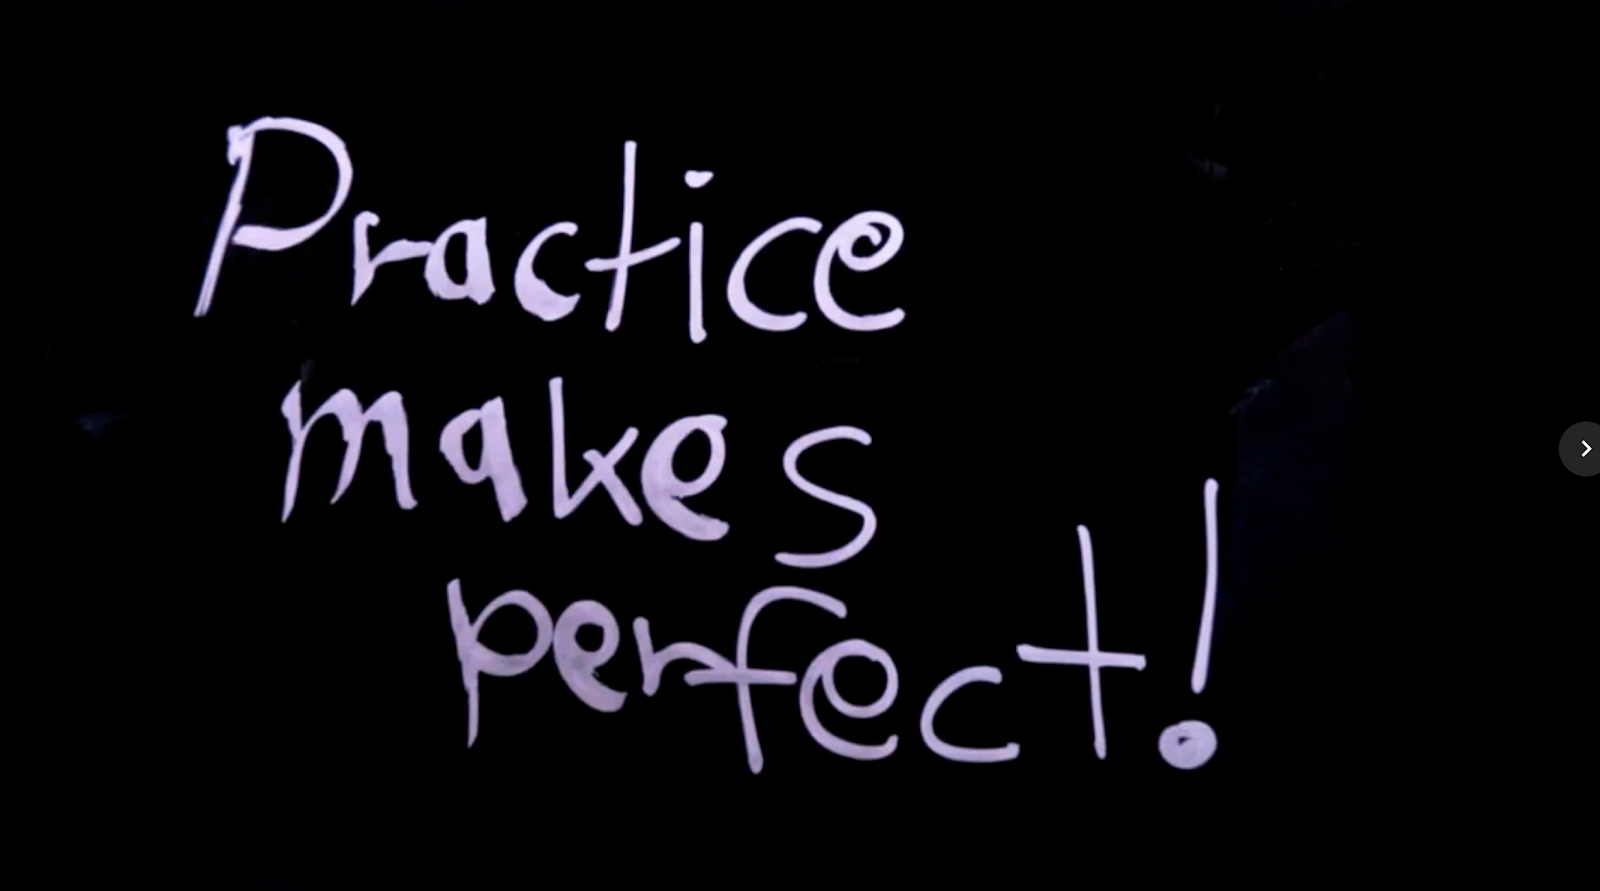 Practice
makes
perfect!